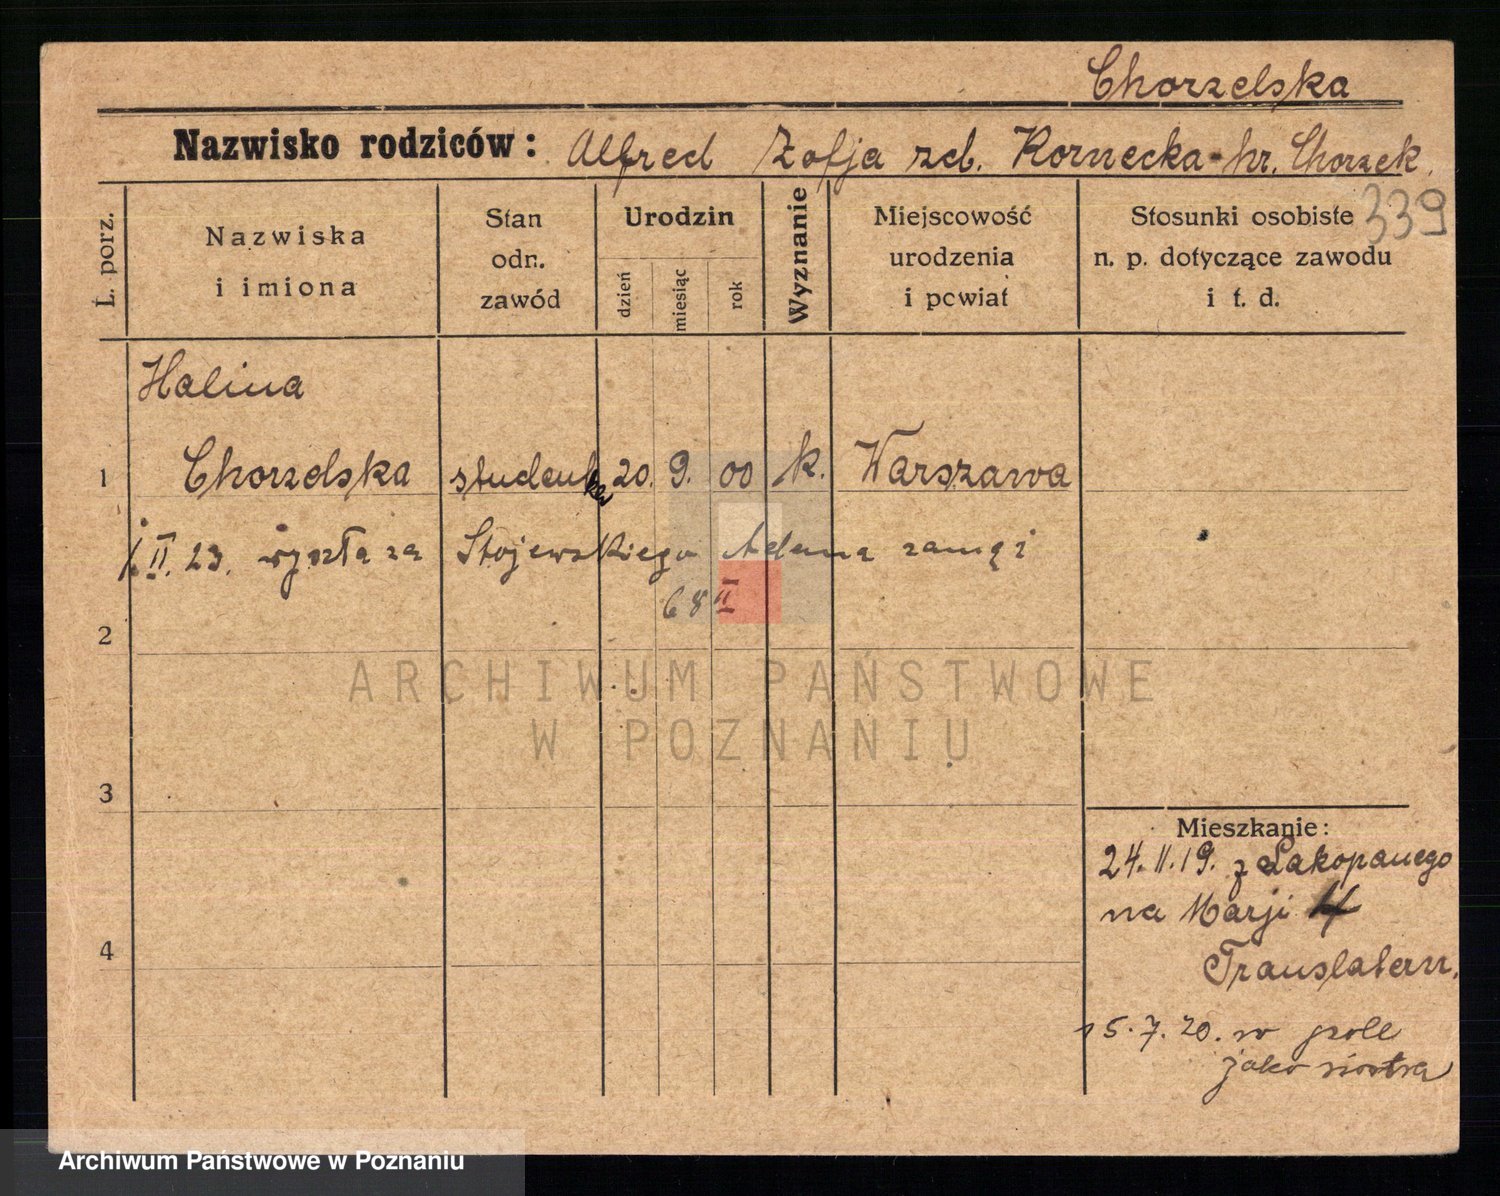 Chorzelska
Nazwisko rodziców: Alfred Zofja zd. Kornecka - hr. Chorzek.
339
L. porz.
Nazwiska i imiona
Stan odn. zawód
Urodzin
dzień
miesiąc
rok
Wyznanie
Miejscowość urodzenia i powiat
Stosunki osobiste n. p. dotyczące zawodu i t. d.
Halina
1 Chorzelska studentka 20. 9. 00 k. Warszawa
1. II. 23. wyszła za Stojewskiego Adama zamąż
68 II
2
3
4
Mieszkanie:
24.11.19. z Zakopanego
na Marji 4
Translatern.
15.7.20. w pole
jako siostra
ARCHIWUM PAŃSTWOWE
W POZNANIU
Archiwum Państwowe w Poznaniu